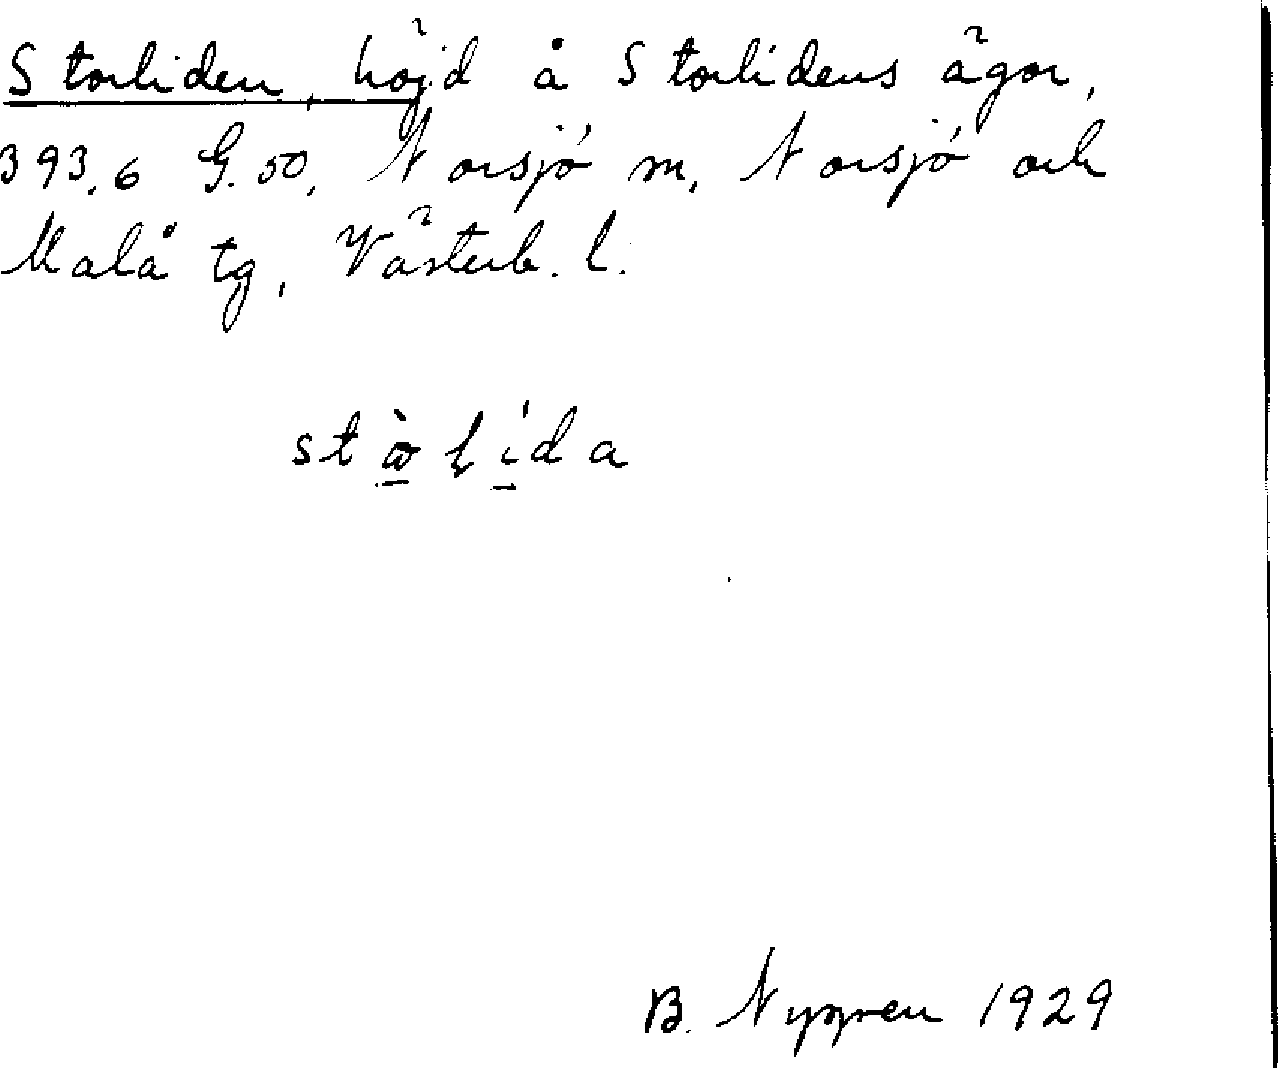 Storliden, höjd å Storlidens ägor,
393,6 G. 50, Norsjö m, Norsjö och
Malå tg, Västerb. l.
stɷ̲̀ɭí̲da
B. Nygren 1929